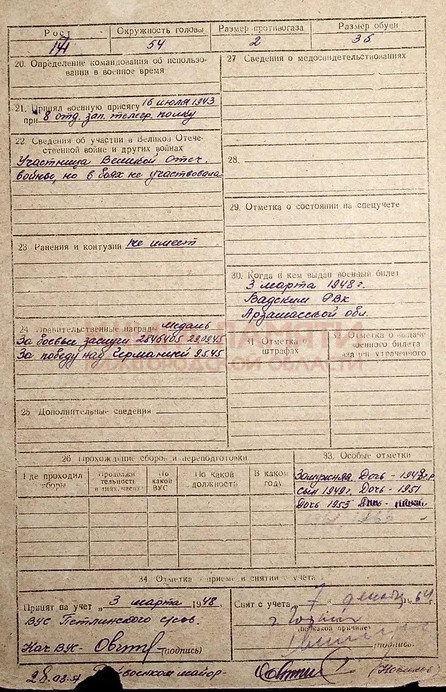 Рост
Окружность головы
Размер противогаза
Размер обуви
54
2
35
20. Определение командования об использовании в военное время
21. Принял военную присягу 16 июля 1943
при 8 отд. зап. телегр. полку
22. Сведения об участии в Великой Отечественной войне и других войнах
Участница Великой Отеч.
войны, но в боях не участвовала
23. Ранения и контузии не имеет
24. Правительственные награды медаль
За боевые заслуги
За победу над Германией 9.5.45
25. Дополнительные сведения
27. Сведения о медосвидетельствованиях
28.
29. Отметка о состоянии на спецучете
30. Когда и кем выдан военный билет
3 марта 1948 г.
Вадским РВК
Арзамасской обл.
31. Отметка о штрафах
Отметка о выдаче военного билета взамен утраченного
26. Прохождение сборов и переподготовки
Где проходил сборы
Продолжительность в днях, часах
По какой ВУС
По какой должности
В каком году
33. Особые отметки
Замужняя Дочь -
сын 1949 г. Дочь - 1951
Дочь 1953
34. Отметка о приеме и снятии с учета
Принят на учет 3 марта 1948 г.
ВУС
Нач. ВУС
(подпись)
Снят с учета 7
(по какой причине)
(подпись)
майор